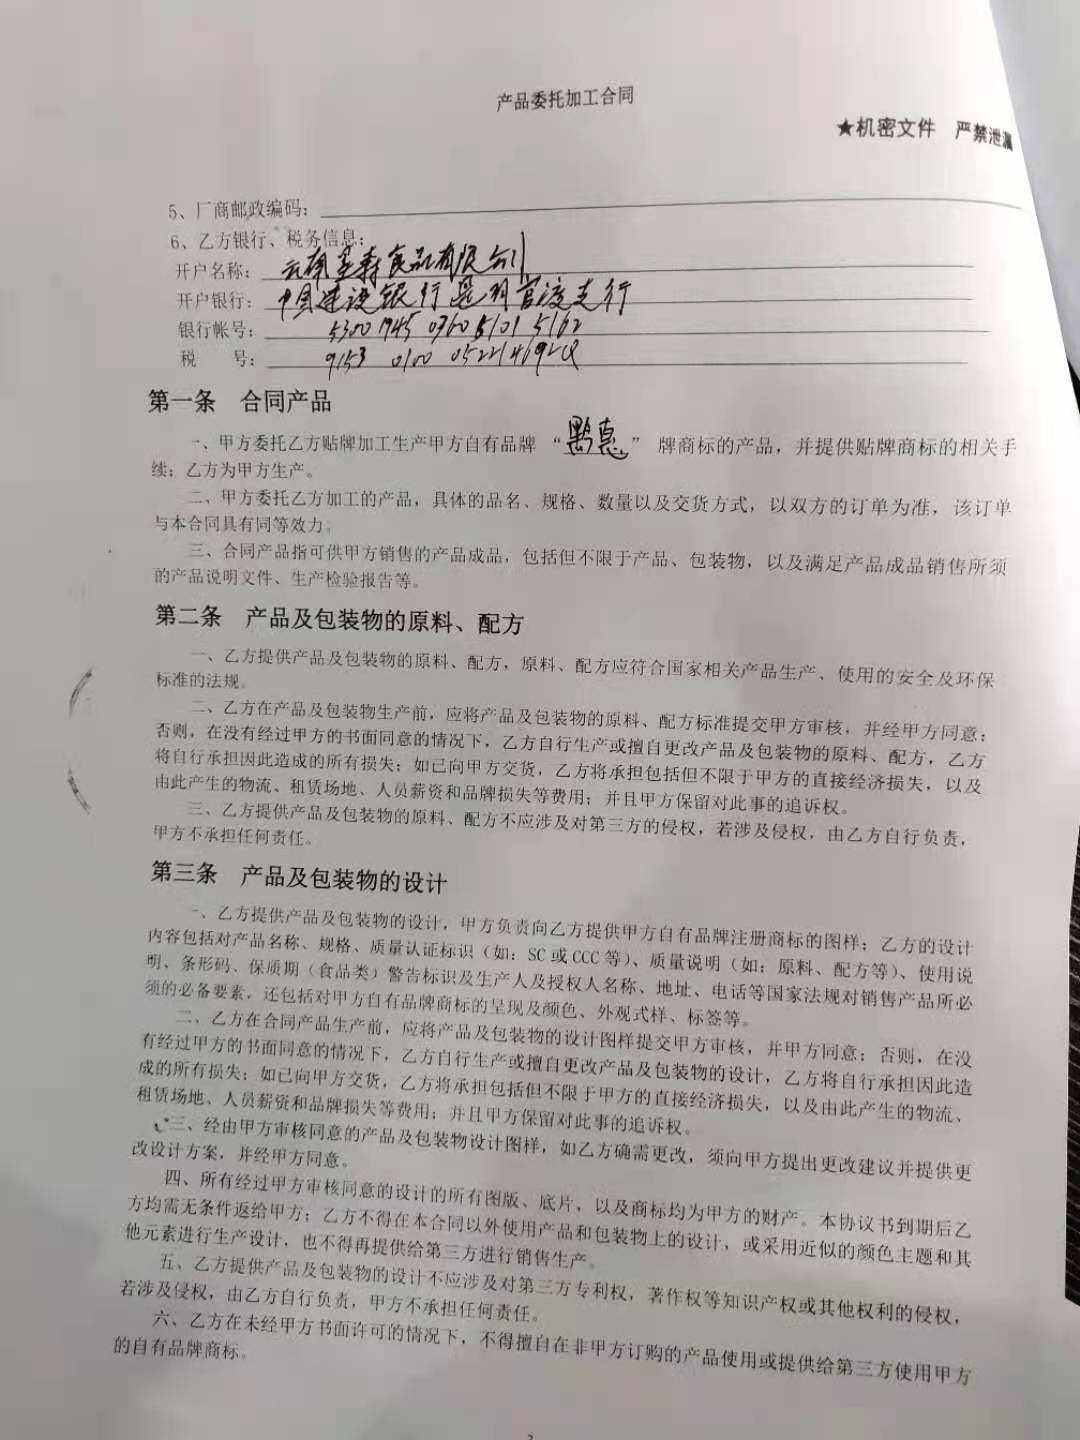 产品委托加工合同
★机密文件 严禁泄漏
5、厂商邮政编码：
6、乙方银行、税务信息：
开户名称：云南 食品有限公司
开户银行：中国建设银行昆明官渡支行
银行帐号：5300 1945 0360 5101 5162
税 号：9153 0100
第一条 合同产品
一、甲方委托乙方贴牌加工生产甲方自有品牌“黔惠”牌商标的产品，并提供贴牌商标的相关手
续；乙方为甲方生产。
二、甲方委托乙方加工的产品，具体的品名、规格、数量以及交货方式，以双方的订单为准，该订单
与本合同具有同等效力。
三、合同产品指可供甲方销售的产品成品，包括但不限于产品、包装物，以及满足产品成品销售所须
的产品说明文件、生产检验报告等。
第二条 产品及包装物的原料、配方
一、乙方提供产品及包装物的原料、配方，原料、配方应符合国家相关产品生产、使用的安全及环保
标准的法规。
二、乙方在产品及包装物生产前，应将产品及包装物的原料、配方标准提交甲方审核，并经甲方同意；
否则，在没有经过甲方的书面同意的情况下，乙方自行生产或擅自更改产品及包装物的原料、配方，乙方
将自行承担因此造成的所有损失；如已向甲方交货，乙方将承担包括但不限于甲方的直接经济损失，以及
由此产生的物流、租赁场地、人员薪资和品牌损失等费用；并且甲方保留对此事的追诉权。
三、乙方提供产品及包装物的原料、配方不应涉及对第三方的侵权，若涉及侵权，由乙方自行负责，
甲方不承担任何责任。
第三条 产品及包装物的设计
一、乙方提供产品及包装物的设计，甲方负责向乙方提供甲方自有品牌注册商标的图样；乙方的设计
内容包括对产品名称、规格、质量认证标识（如：SC或CCC等）、质量说明（如：原料、配方等）、使用说
明、条形码、保质期（食品类）警告标识及生产人及授权人名称、地址、电话等国家法规对销售产品所必
须的必备要素，还包括对甲方自有品牌商标的呈现及颜色、外观式样、标签等。
二、乙方在合同产品生产前，应将产品及包装物的设计图样提交甲方审核，并甲方同意；否则，在没
有经过甲方的书面同意的情况下，乙方自行生产或擅自更改产品及包装物的设计，乙方将自行承担因此造
成的所有损失；如已向甲方交货，乙方将承担包括但不限于甲方的直接经济损失，以及由此产生的物流、
租赁场地、人员薪资和品牌损失等费用；并且甲方保留对此事的追诉权。
三、经由甲方审核同意的产品及包装物设计图样，如乙方确需更改，须向甲方提出更改建议并提供更
改设计方案，并经甲方同意。
四、所有经过甲方审核同意的设计的所有图版、底片，以及商标均为甲方的财产。本协议书到期后乙
方均需无条件返给甲方；乙方不得在本合同以外使用产品和包装物上的设计，或采用近似的颜色主题和其
他元素进行生产设计，也不得再提供给第三方进行销售生产。
五、乙方提供产品及包装物的设计不应涉及对第三方专利权，著作权等知识产权或其他权利的侵权，
若涉及侵权，由乙方自行负责，甲方不承担任何责任。
六、乙方在未经甲方书面许可的情况下，不得擅自在非甲方订购的产品使用或提供给第三方使用甲方
的自有品牌商标。